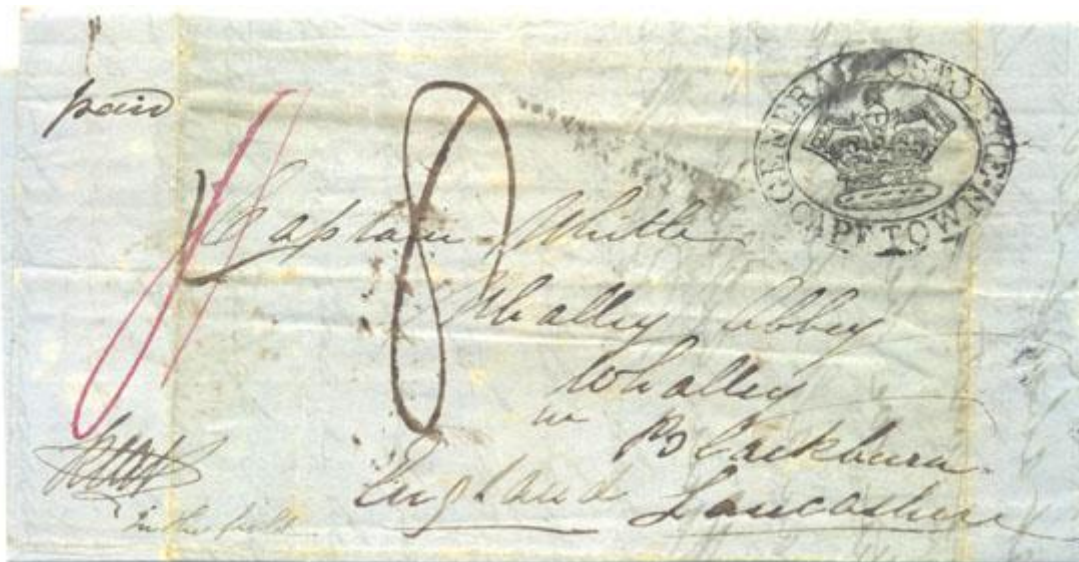 paid
GENERAL POST OFFICE
CAPE TOWN
8
Captain Whitle
Whalley Abbey
Whalley
nr Blackburn
England Lancashire
in the field